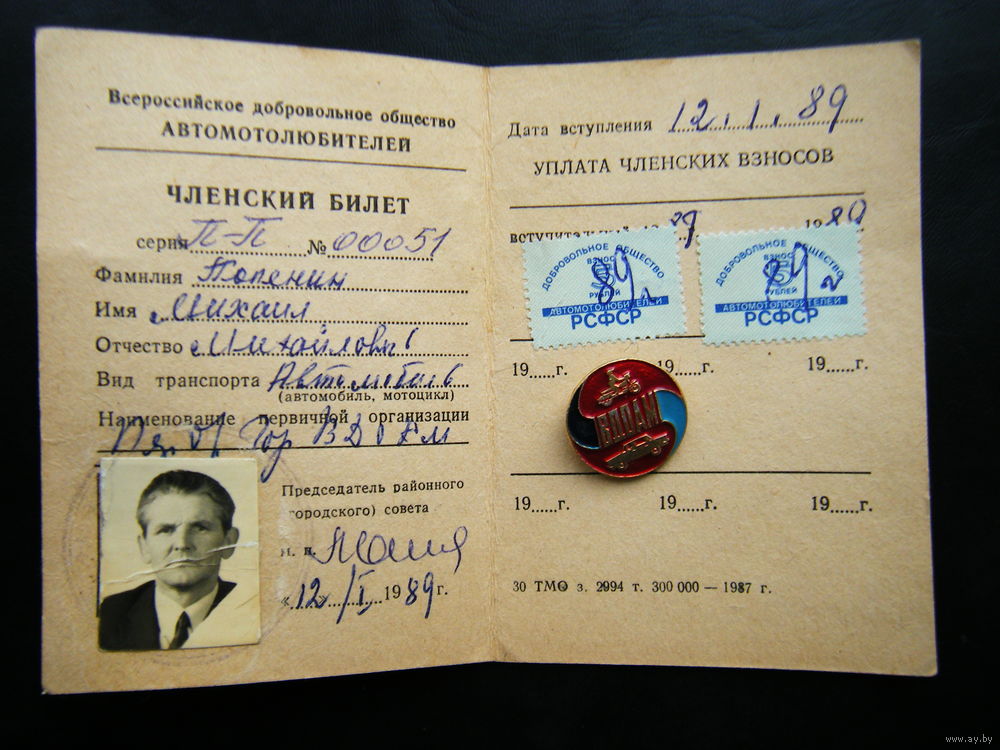 Всероссийское добровольное общество
АВТОМОТОЛЮБИТЕЛЕЙ
ЧЛЕНСКИЙ БИЛЕТ
серия П-П № 00051
Фамилия Попенин
Имя Михаил
Отчество Михайлович
Вид транспорта Автомобиль
(автомобиль, мотоцикл)
Наименование первичной организации
Гор
Председатель районного
городского) совета
м. п.
«12» I 1989 г.
Дата вступления 12.1.89
УПЛАТА ЧЛЕНСКИХ ВЗНОСОВ
вступительный 1989 1989
ДОБРОВОЛЬНОЕ ОБЩЕСТВО
ВЗНОС
5
РУБЛЕЙ
89 г
АВТОМОТОЛЮБИТЕЛЕЙ
РСФСР
ДОБРОВОЛЬНОЕ ОБЩЕСТВО
ВЗНОС
5
РУБЛЕЙ
89 г
АВТОМОТОЛЮБИТЕЛЕЙ
РСФСР
19.....г. г. 19.....г.
ВДОАМ
19.....г. 19.....г. 19.....г.
30 ТМО з. 2994 т. 300 000 — 1987 г.
www.ay.by